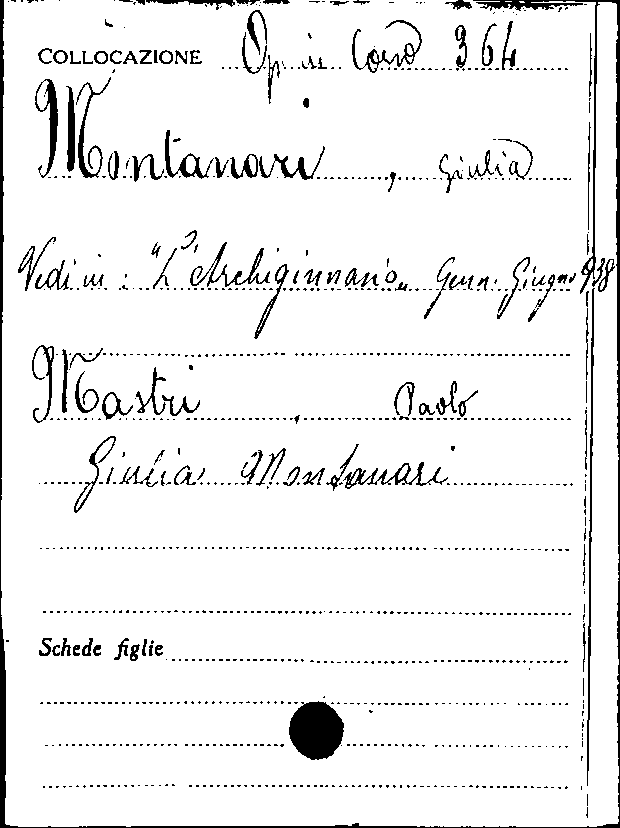 COLLOCAZIONE Op in Corso 364
Montanari, Giulia
Vedi in: "L'Archiginnasio" Genn. Giugno 938
Mastri, Paolo
Giulia Montanari
Schede figlie